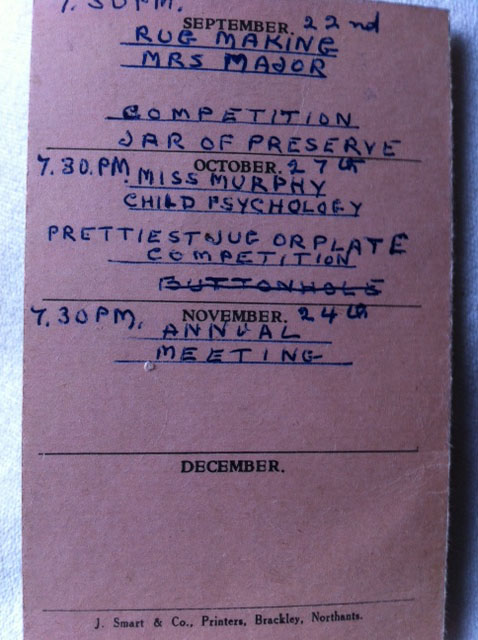 7.30PM.
SEPTEMBER. 22nd
RUG MAKING
MRS MAJOR
COMPETITION
JAR OF PRESERVE
OCTOBER. 27th
7.30.PM. MISS MURPHY
CHILD PSYCHOLOGY
PRETTIEST JUG OR PLATE
COMPETITION
BUTTONHOLE
NOVEMBER. 24th
7.30PM. ANNUAL
MEETING
DECEMBER.
J. Smart & Co., Printers, Brackley, Northants.